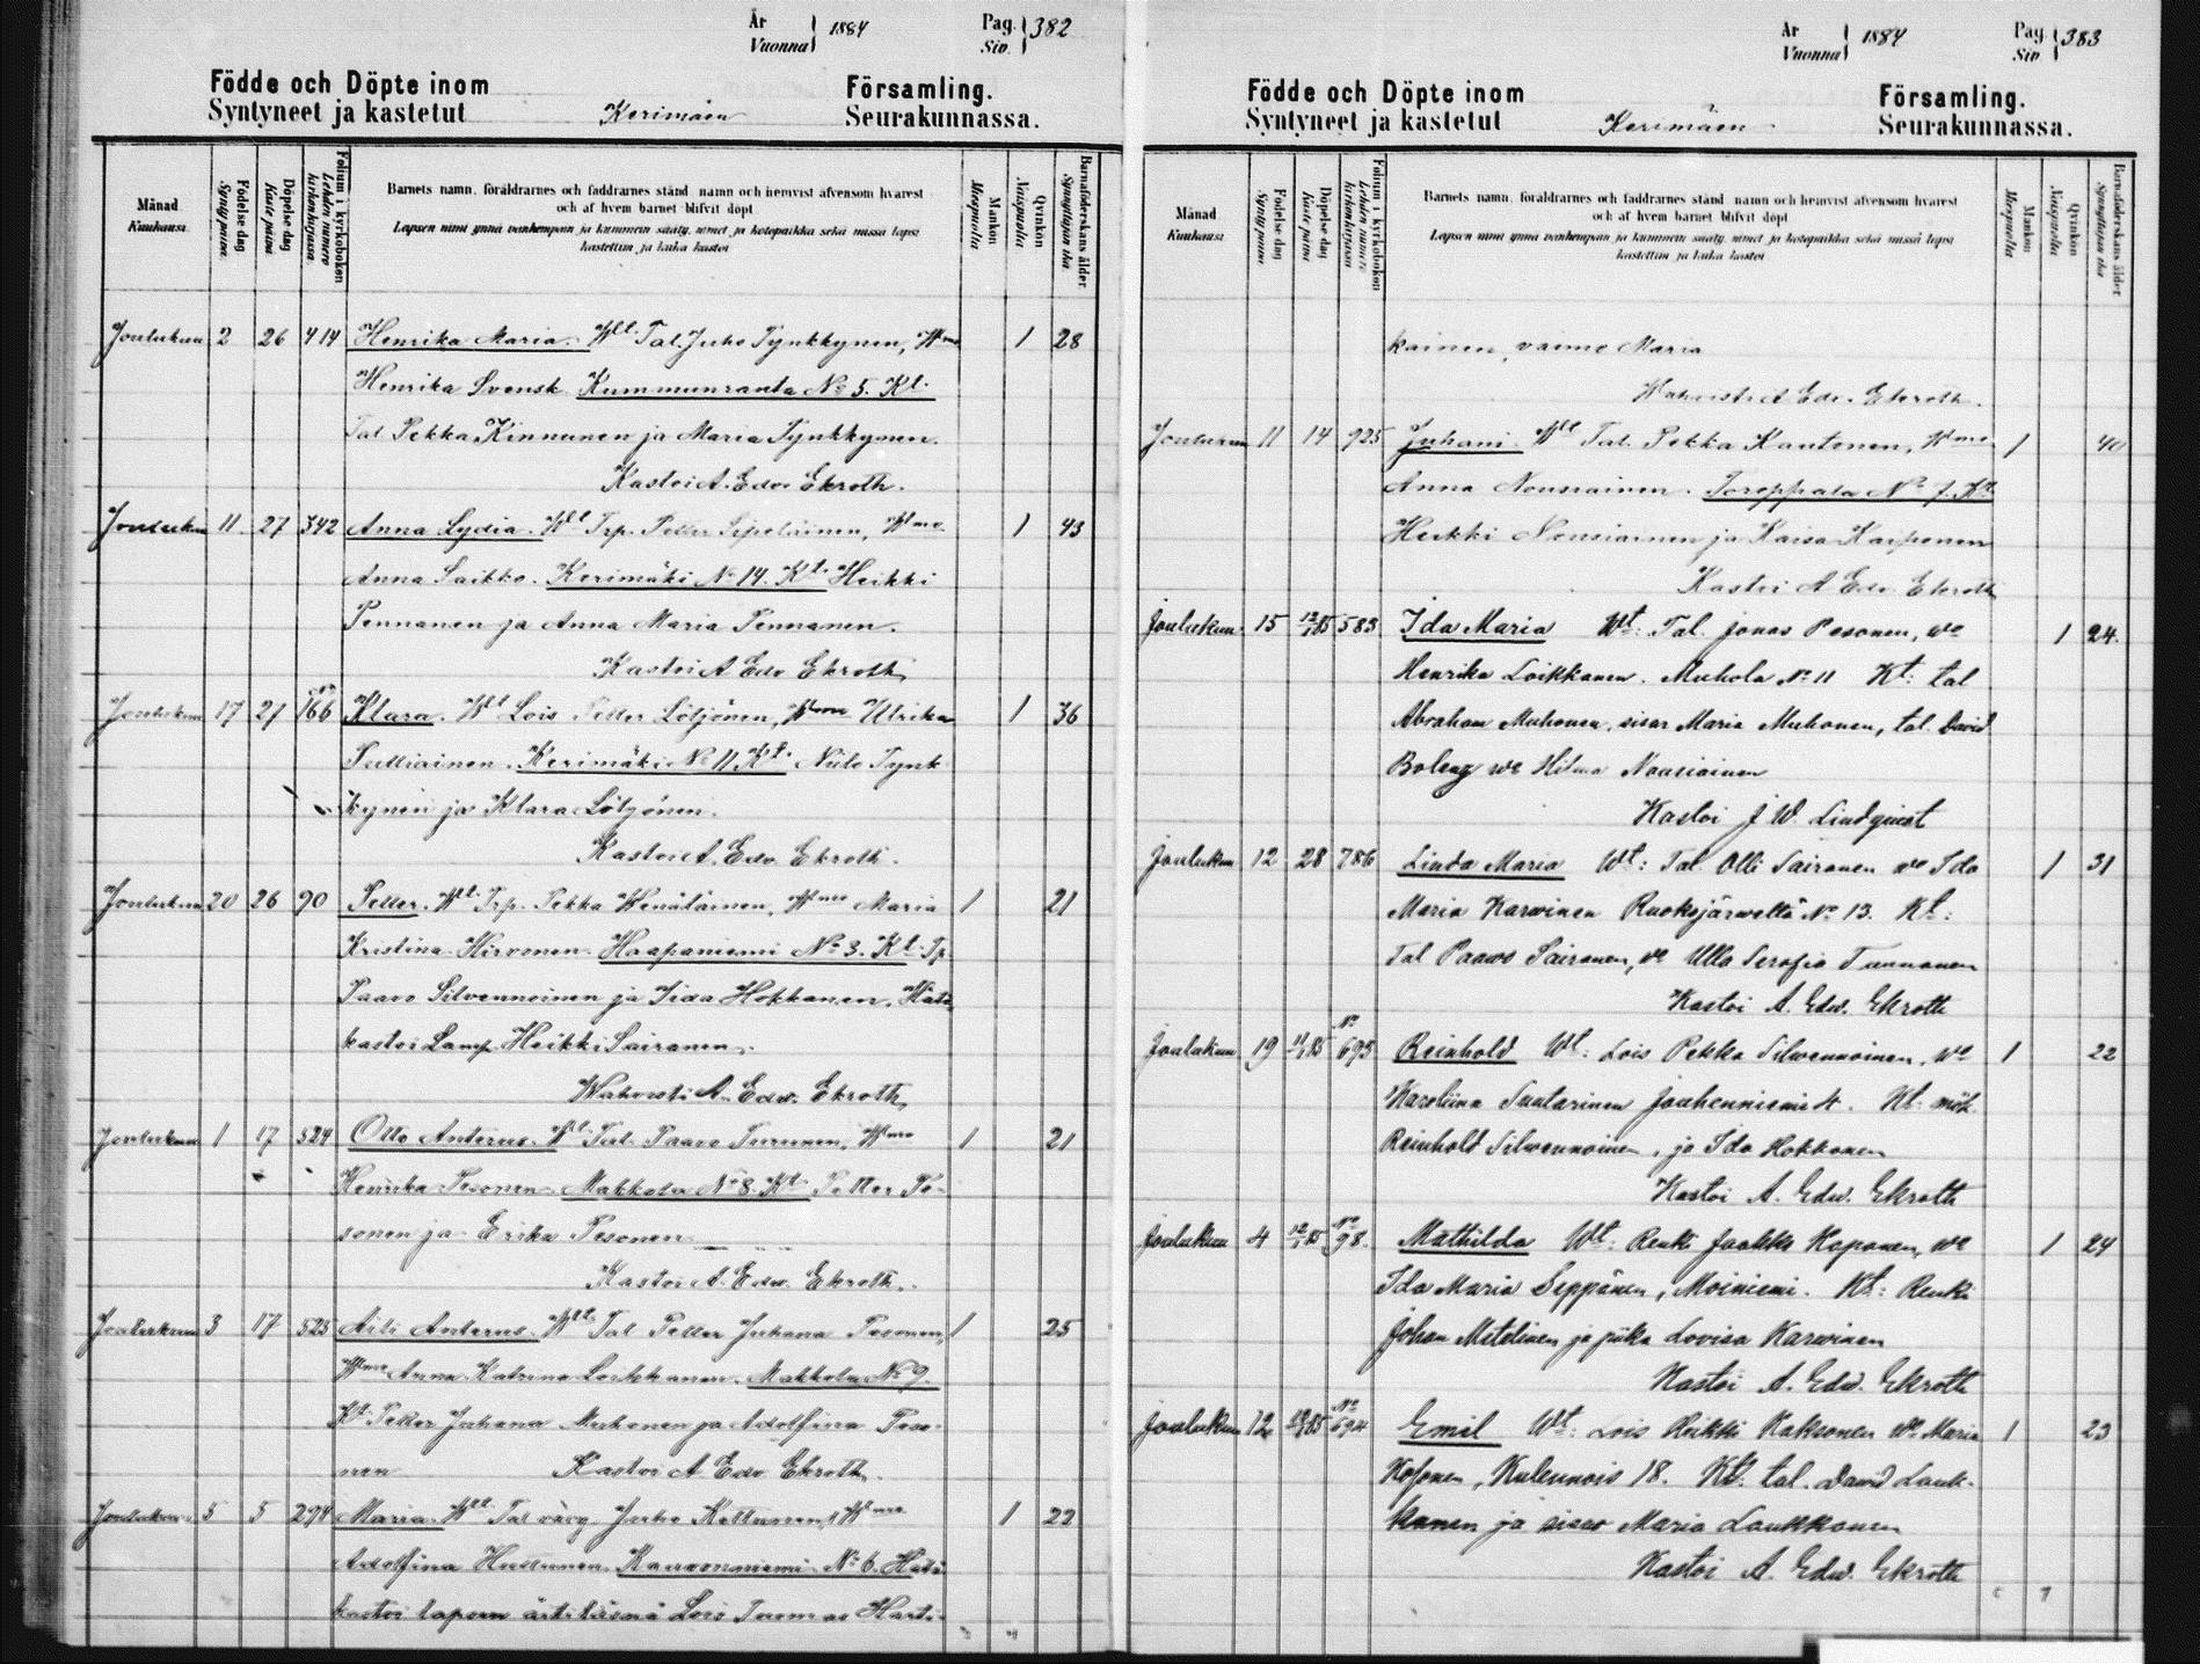 År
Vuonna
1884
Pag. 382
Siv.
Födde och Döpte inom
Syntyneet ja kastetut
Kerimäen
Församling.
Seurakunnassa.
Månad
Kuukausi
Födelse dag
Synty päivä
Döpelse dag
Kaste päivä
Folium i kyrkoboken
Lehden numero kirkonkirjassa
Barnets namn, föräldrarnes och faddrarnes stånd, namn och hemvist äfvensom hvarest
och af hvem barnet blifvit döpt
Lapsen nimi ynnä vanhempain ja kummein sääty, nimet ja kotopaikka sekä missä lapsi
kastettiin ja kuka kastoi
Mankön
Miespuolta
Qvinkön
Naispuolta
Barnaföderskans ålder
Synnyttäjän ikä
Joulukuu 2 26 414 Henrika Maria. Wtt Tal. Juho Tynkkynen, Wmo 1 28
Henrika Svensk. Kummunranta No 5. Kt.
Tal Pekka Kinnunen ja Maria Tynkkynen.
Kastoi A. Edv. Ekroth.
Joulukuu 11 27 342 Anna Lydia. Wtt Trp. Petter Sepeläinen, Wmo 1 43
Anna Saikko. Kerimäki No 14. Kt. Heikki
Pennanen ja Anna Maria Pennanen.
Kastoi A. Edv. Ekroth
Joulukuu 17 21 166 Klara. Wtt Lois Petter Lötjönen, Wmo Ulrika 1 36
Pulliainen. Kerimäki No 11. Kt. Niilo Tynk
kynen ja Klara Lötjönen.
Kastoi A. Edv. Ekroth.
Joulukuu 20 26 90 Petter. Wtt Trp. Pekka Wenäläinen, Wmo Maria 1 21
Kristina Hirvonen. Haapaniemi No 3. Kt. Tp.
Paavo Silvennoinen ja Iida Hokkanen. Hätä
kastoi Lamp. Heikki Sairanen.
Wahvisti A. Edv. Ekroth
Joulukuu 1 17 524 Otto Anterus. Wtt Tal. Paavo Turunen, Wmo 1 21
Henrika Pesonen. Makkola No 8. Kt. Petter Pe-
sonen ja Erika Pesonen
Kastoi A. Edv. Ekroth.
Joulukuu 3 17 525 Aili Anterus. Wtt Tal Petter Juhana Pesonen, 1 25
Wmo Anna Katrina Loikkanen. Makkola No 9.
Kt. Petter Juhana Muhonen ja Adolfina Peso-
nen Kastoi A Edv Ekroth.
Joulukuu 5 5 294 Maria. Wtt Tal Juho Kettunen, Wmo 1 22
Adolfina Huttunen. No 6. Hätä
kastoi lapsen Lois Tuomas Harti-
År
Vuonna
1884
Pag. 383
Siv.
Födde och Döpte inom
Syntyneet ja kastetut
Kerimäen
Församling.
Seurakunnassa.
Månad
Kuukausi
Födelse dag
Synty päivä
Döpelse dag
Kaste päivä
Folium i kyrkoboken
Lehden numero kirkonkirjassa
Barnets namn, föräldrarnes och faddrarnes stånd, namn och hemvist äfvensom hvarest
och af hvem barnet blifvit döpt
Lapsen nimi ynnä vanhempain ja kummein sääty, nimet ja kotopaikka sekä missä lapsi
kastettiin ja kuka kastoi
Mankön
Miespuolta
Qvinkön
Naispuolta
Barnaföderskans ålder
Synnyttäjän ikä
kainen, vaimo Maria
Wahvisti A Edv. Ekroth.
Joulukuu 11 14 925 Juhani. Wtt Tal. Pekka Kautonen, Wmo 1 40
Anna Nousiainen. Toroppala No 7. Kt.
Heikki Nousiainen ja Kaisa Karponen
Kastoi A Edv. Ekroth
Joulukuu 15 12/1 85 583 Ida Maria Wt: Tal. Jonas Pesonen, wo 1 24.
Henrika Loikkanen. Muhola No 11 Kt: tal
Abraham Muhonen, sisar Maria Muhonen, tal. David
wo Hilma Nousiainen
Kastoi J W. Lindquist
Joulukuu 12 28 786 Linda Maria Wt: Tal. Olli Sairanen wo Ida 1 31
Maria Karvinen Ruoksjärweltä No 13. Kt:
Tal Paavo Sairanen, wo Ulla Serafia Tannanen
Kastoi A. Edw. Ekroth
Joulukuu 19 11/1 85 No 693 Reinhold Wt: Lois Pekka Silwennoinen, wo 1 22
Karoliina Suutarinen Jouhenniemi 4. Kt: mök.
Reinhold Silwennoinen, ja Ida Hokkanen
Kastoi A. Edw. Ekroth
Joulukuu 4 12/1 85 No 98. Mathilda Wt: Renki Jaakko Koponen, wo 1 24
Ida Maria Seppänen, Moiniemi. Kt: Renki
Johan Mitelinen ja piika Lovisa Karwinen
Kastoi A. Edw. Ekroth
Joulukuu 12 No 694 Emil Wt: Lois Heikki Kaksonen Wo Maria 1 23
Kosonen, Kulennois 18. Kt: tal. David Lauk-
kanen ja sisar Maria Laukkanen
Kastoi A. Edw. Ekroth